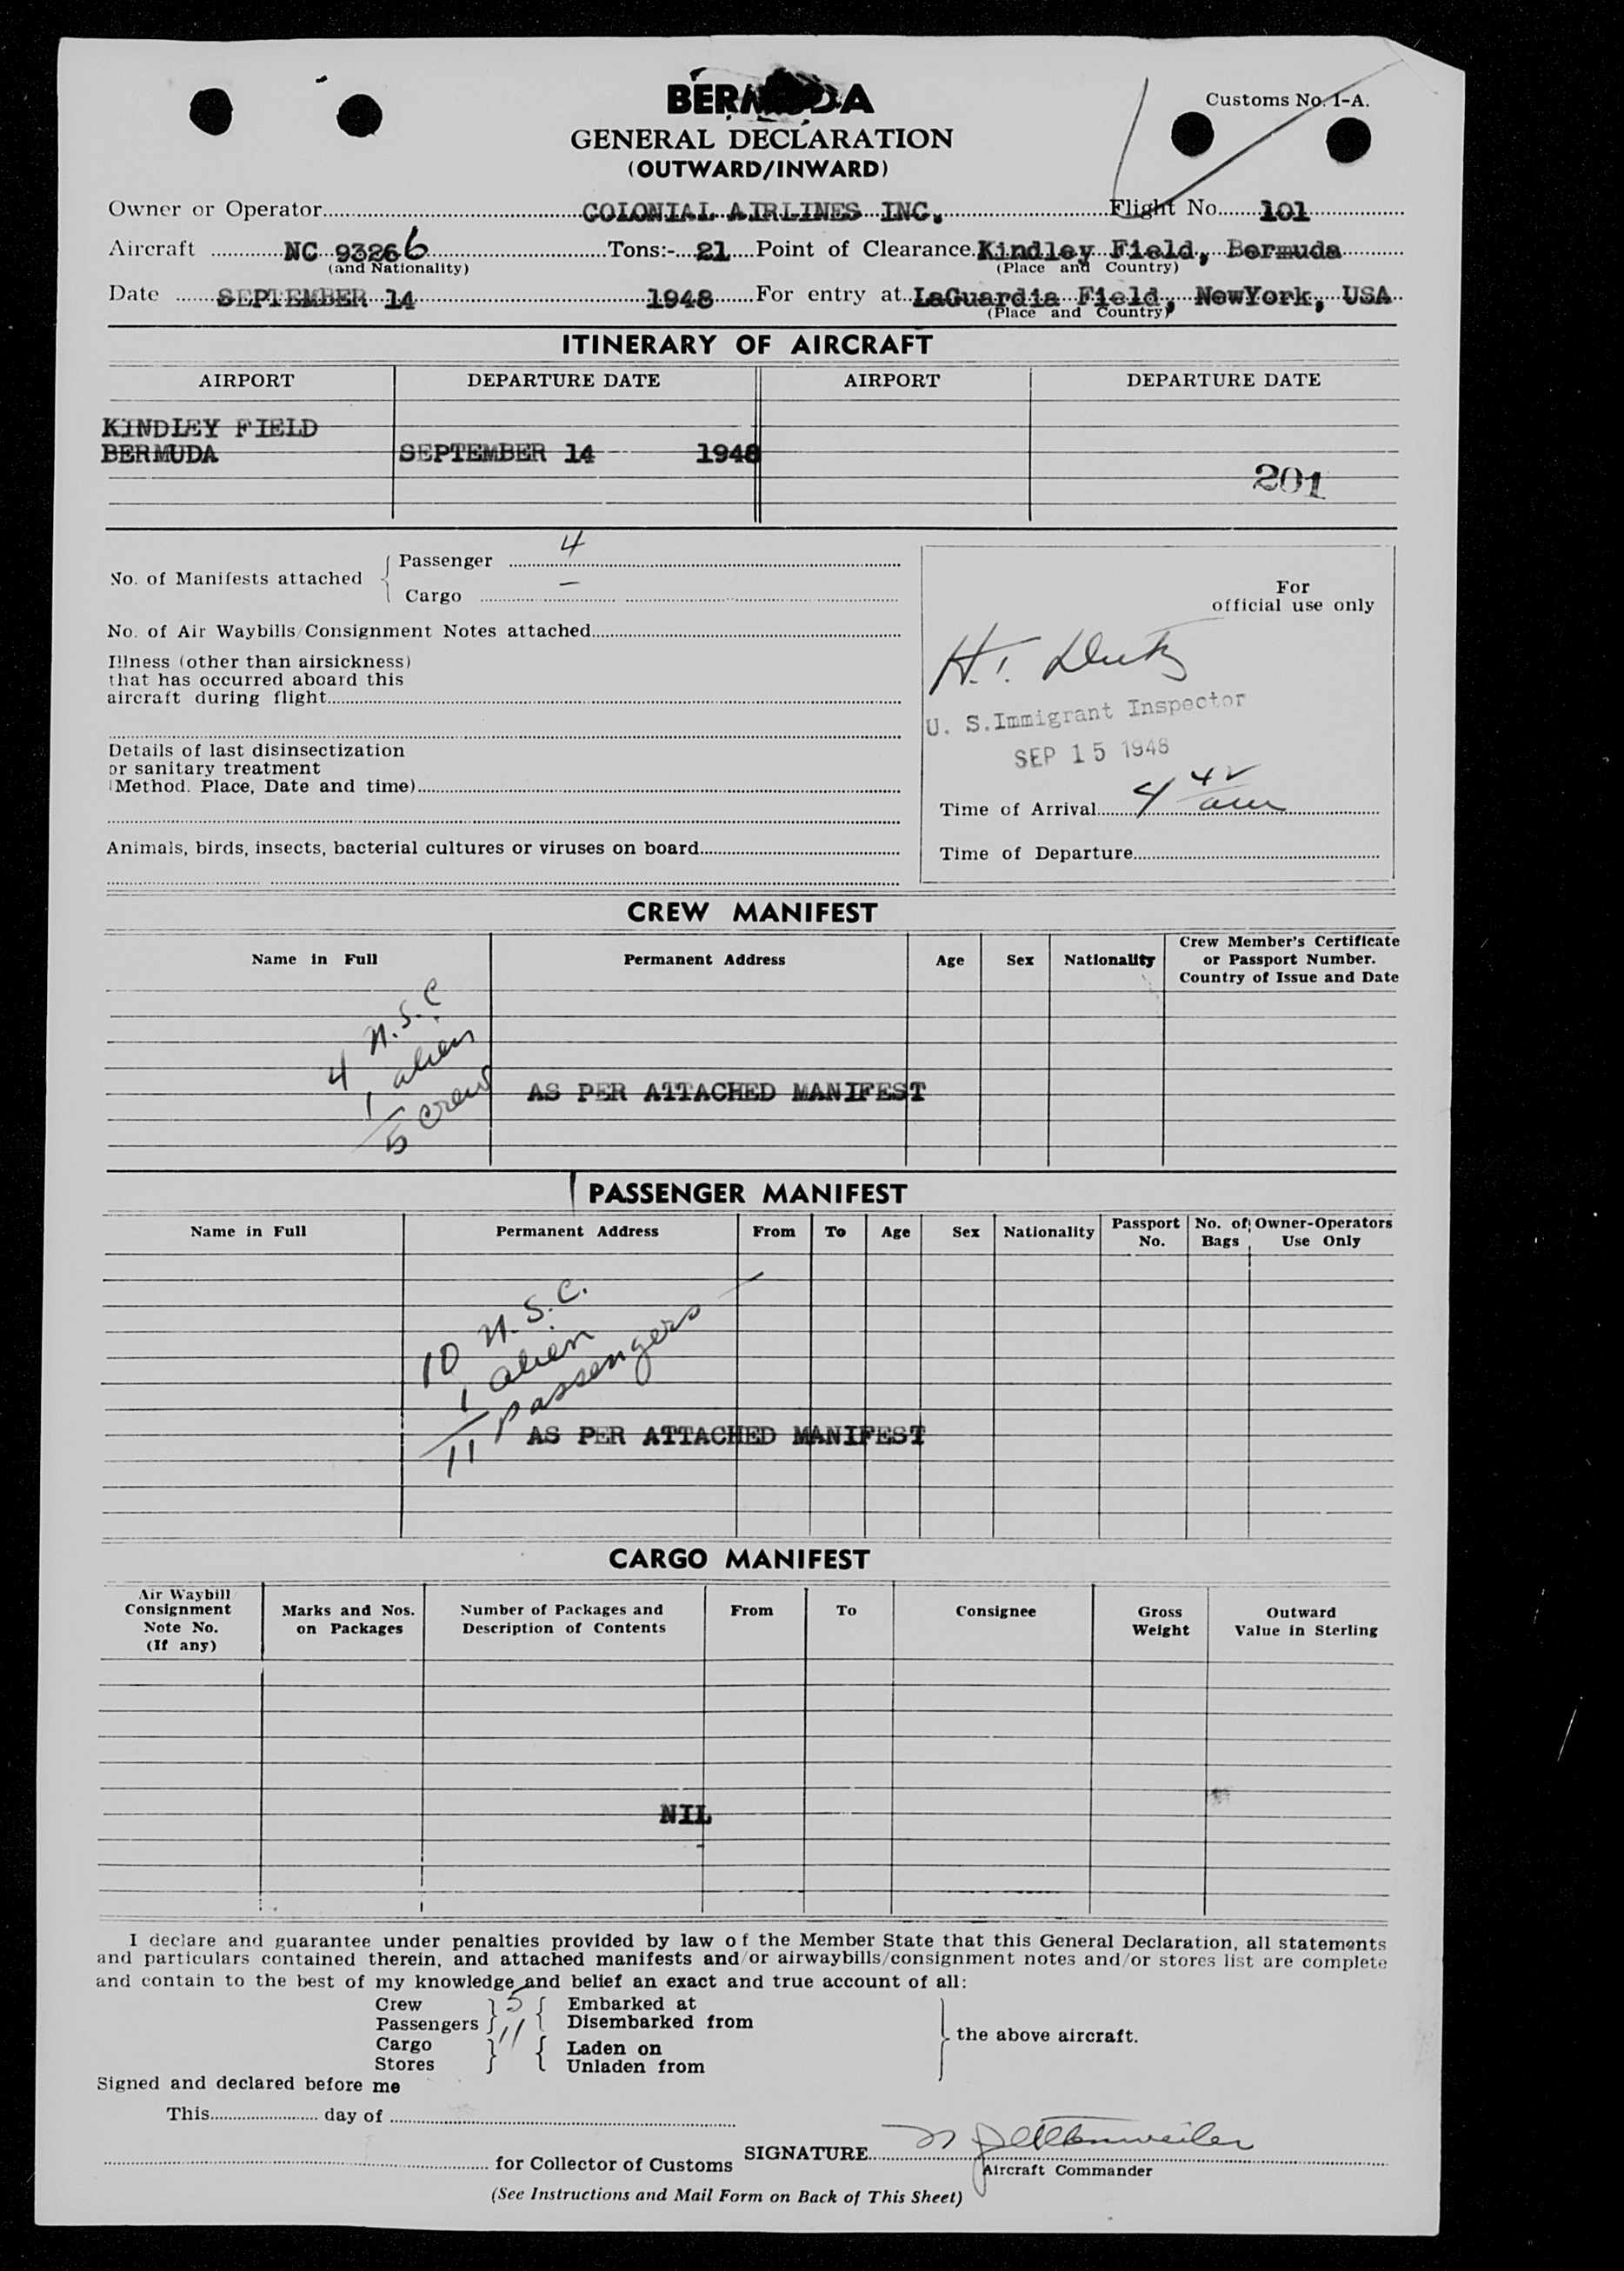 BERMUDA
Customs No. 1-A.
GENERAL DECLARATION
(OUTWARD/INWARD)
Owner or Operator COLONIAL AIRLINES INC. Flight No. 101
Aircraft NC 93266 Tons:- 21 Point of Clearance Kindley Field, Bermuda
(and Nationality) (Place and Country)
Date SEPTEMBER 14 1948 For entry at LaGuardia Field, NewYork, USA
(Place and Country)
ITINERARY OF AIRCRAFT
AIRPORT DEPARTURE DATE AIRPORT DEPARTURE DATE
KINDLEY FIELD
BERMUDA SEPTEMBER 14 1948
201
No. of Manifests attached Passenger 4
Cargo —
No. of Air Waybills/Consignment Notes attached
Illness (other than airsickness)
that has occurred aboard this
aircraft during flight
Details of last disinsectization
or sanitary treatment
(Method. Place, Date and time)
Animals, birds, insects, bacterial cultures or viruses on board
For
official use only
H.
U. S. Immigrant Inspector
SEP 15 1948
Time of Arrival 4 42 am
Time of Departure
CREW MANIFEST
Name in Full Permanent Address Age Sex Nationality Crew Member's Certificate
or Passport Number.
Country of Issue and Date
4 U.S.C
1 alien
5 crew
AS PER ATTACHED MANIFEST
PASSENGER MANIFEST
Name in Full Permanent Address From To Age Sex Nationality Passport No. No. of Bags Owner-Operators Use Only
10 U.S.C.
1 alien
11 passengers
AS PER ATTACHED MANIFEST
CARGO MANIFEST
Air Waybill Consignment Note No. (If any) Marks and Nos. on Packages Number of Packages and Description of Contents From To Consignee Gross Weight Outward Value in Sterling
NIL
I declare and guarantee under penalties provided by law of the Member State that this General Declaration, all statements
and particulars contained therein, and attached manifests and/or airwaybills/consignment notes and/or stores list are complete
and contain to the best of my knowledge and belief an exact and true account of all:
Crew 5 Embarked at
Passengers 11 Disembarked from
the above aircraft.
Cargo Laden on
Stores Unladen from
Signed and declared before me
This day of
for Collector of Customs SIGNATURE
Aircraft Commander
(See Instructions and Mail Form on Back of This Sheet)